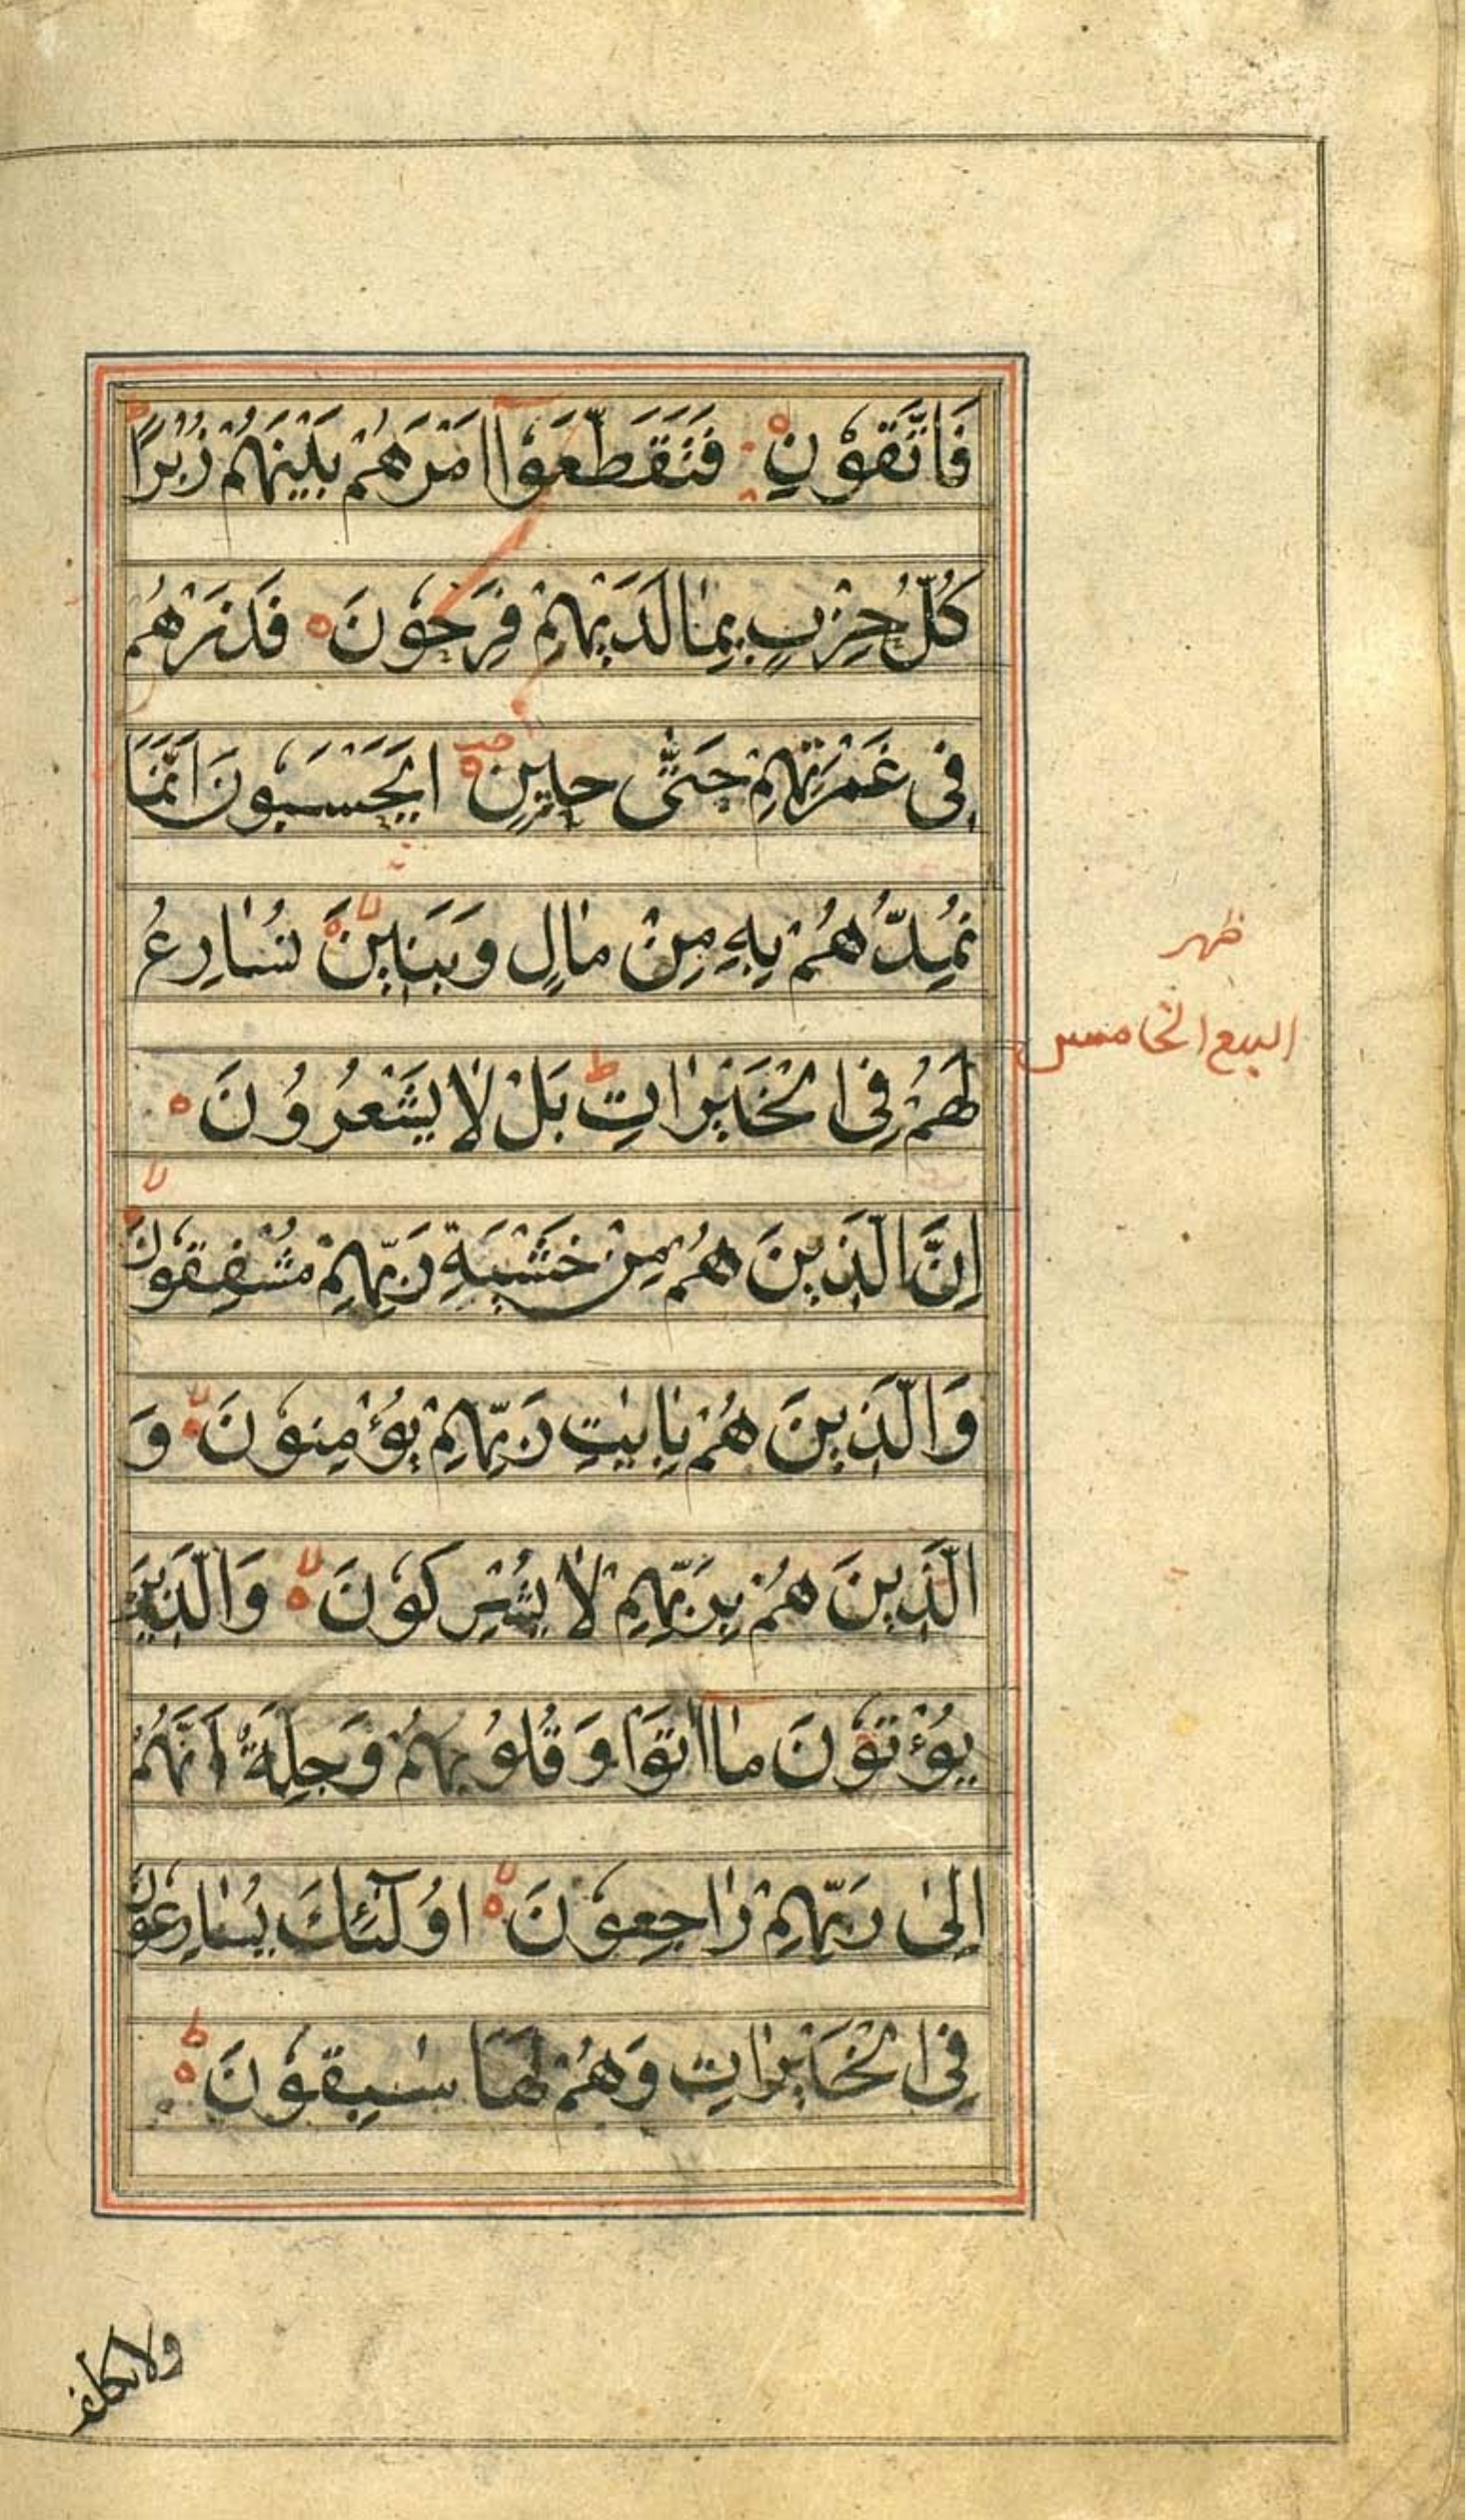 فَاتَّقُوْنِ فَتَقَطَّعُوْا اَمْرَهُمْ بَيْنَهُمْ زُبُرًا
كُلُّ حِزْبٍ بِمٰا لَدَيْهِمْ فَرِحُوْنَ فَذَرْهُمْ
فِى غَمْرَتِهِمْ حَتّٰى حٖينٍ اَيَحْسَبُوْنَ اَنَّمَا
نُمِدُّهُمْ بِهٖ مِنْ مٰالٍ وَبَنٖينَ نُسٰارِعُ
لَهُمْ فِى الْخَيْرٰاتِ بَلْ لٰا يَشْعُرُوْنَ
اِنَّ الَّذٖينَ هُمْ مِنْ خَشْيَةِ رَبِّهِمْ مُشْفِقُوْنَ
وَالَّذٖينَ هُمْ بِاٰيٰتِ رَبِّهِمْ يُؤْمِنُوْنَ وَ
الَّذٖينَ هُمْ بِرَبِّهِمْ لٰا يُشْرِكُوْنَ وَالَّذٖينَ
يُؤْتُوْنَ مٰا اٰتَوْا وَقُلُوْبُهُمْ وَجِلَةٌ اَنَّهُمْ
اِلٰى رَبِّهِمْ رٰاجِعُوْنَ اُولٰٓئِكَ يُسٰارِعُوْنَ
فِى الْخَيْرٰاتِ وَهُمْ لَهَا سٰبِقُوْنَ
ظهر
السبع الخامس
ولا نكلف